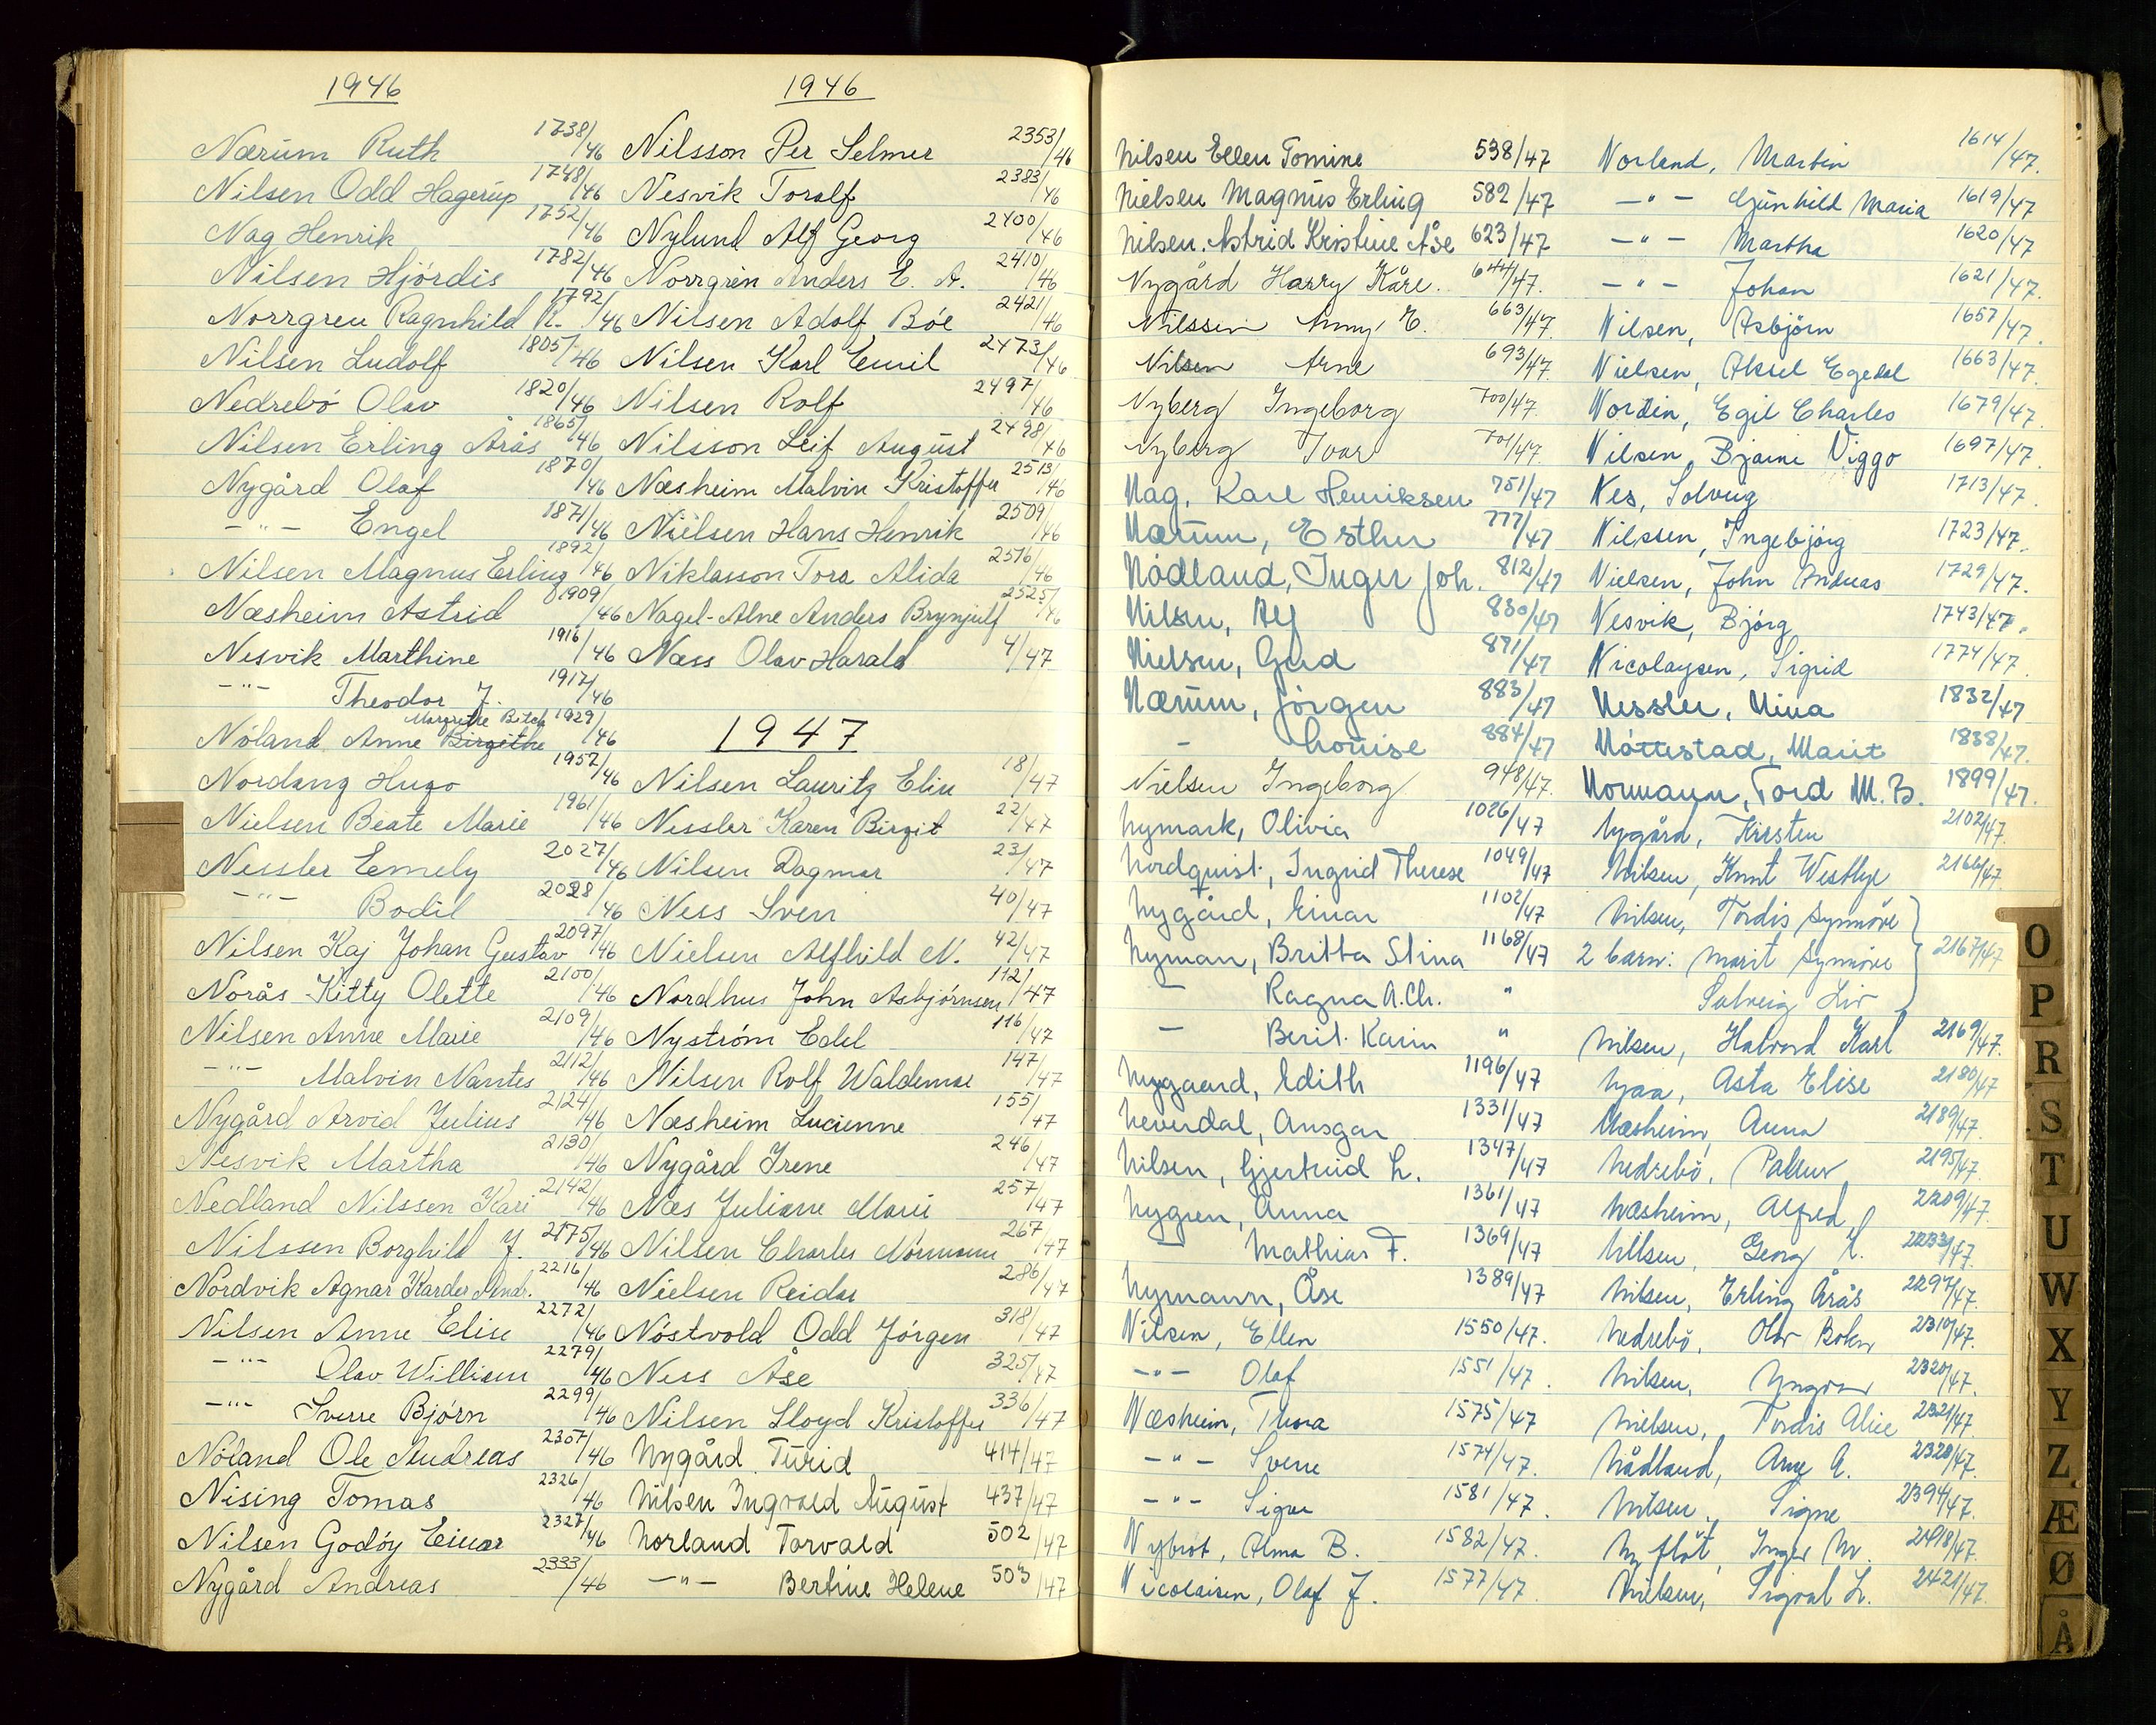 1946
Nærum Ruth 1738/46
Nilsen Odd Hagerup 1748/46
Nag Henrik 1752/46
Nilsen Hjördis 1782/46
Norrgren Ragnhild K. 1792/46
Nilsen Ludolf 1805/46
Nedrebö Olav 1820/46
Nilsen Erling Årås 1865/46
Nygård Olaf 1870/46
-"- Engel 1871/46
Nilsen Magnus Erling 1892/46
Næsheim Astrid 1909/46
Nesvik Marthine 1916/46
-"- Theodor J. 1917/46
Margrethe
Nöland Anne Birgithe 1929/46
Nordang Hugo 1952/46
Nielsen Beate Marie 1961/46
Nessler Emely 2027/46
-"- Bodil 2028/46
Nilsen Kaj Johan Gustav 2097/46
Norås Kitty Olette 2100/46
Nilsen Anne Marie 2109/46
-"- Malvin Nantes 2112/46
Nygård Arvid Julius 2124/46
Nesvik Martha 2130/46
Nedland Nilssen Kari 2142/46
Nilssen Borghild J. 2175/46
Nordvik Agnar 2216/46
Nilsen Anne Elise 2272/46
-"- Olav William 2279/46
-"- Sverre Björn 2299/46
Nöland Ole Andreas 2307/46
Nising Tomas 2326/46
Nilsen Godöy Einar 2327/46
Nygård Andreas 2333/46
1946
Nilsson Per Selmer 2353/46
Nesvik Toralf 2383/46
Nylund Alf Georg 2400/46
Norrgren Anders E. A. 2410/46
Nilsen Adolf Böe 2421/46
Nilsen Karl Emil 2473/46
Nilsen Rolf 2497/46
Nilsson Leif August 2498/46
Næsheim Malvin Kristoffer 2513/46
Nielsen Hans Henrik 2509/46
Niklasson Tora Alida 2516/46
Nagel-Alne Anders Brynjulf 2525/46
Næss Olav Harald 4/47
1947
Nilsen Lauritz Elin 18/47
Nessler Karen Birgit 22/47
Nilsen Dagmar 23/47
Ness Sven 40/47
Nielsen Alfhild N. 42/47
Nordhus John Asbjörnsen 112/47
Nyström Edel 116/47
Nilsen Rolf Waldemar 147/47
Næsheim Lucienne 155/47
Nygård Irene 246/47
Næs Julianne Marie 257/47
Nilsen Charles Normann 267/47
Nielsen Reidar 286/47
Nöstvold Odd Jörgen 318/47
Ness Åse 325/47
Nilsen Lloyd Kristoffer 336/47
Nygård Turid 414/47
Nilsen Ingvald August 437/47
Norland Torvald 502/47
-"- Bertine Helene 503/47
Nilsen Ellen Tomine 538/47
Nielsen Magnus Erling 582/47
Nilsen. Astrid Kristine Åse 623/47
Nygård Harry Kåre. 644/47.
Nilssen Anny E. 663/47.
Nilsen Arne 693/47.
Nyberg Ingeborg 700/47.
Nyberg Ivar 701/47.
Nag, Karl Henriksen 751/47
Nærum, Esther 777/47
Nödland, Inger Joh. 812/47
Nilsen, Alf 830/47
Nielsen, Gerd 871/47
Nærum, Jörgen 883/47
- Louise 884/47
Nielsen Ingeborg 948/47.
Nymark, Olivia 1026/47
Nordquist, Ingrid Therese 1049/47
Nygård, Einar 1102/47
Nyman, Britta Stina 1168/47
- Ragna A. Ch. "
- Berit Karin "
Nygaard, Edith 1196/47
Neverdal, Ansgar 1331/47
Nilsen, Gjertrud L. 1347/47
Nygren, Anna 1361/47
- Mathias F. 1369/47
Nymann, Åse 1389/47
Nilsen, Ellen 1550/47.
-"- Olaf 1551/47.
Næsheim, Thora 1575/47
-"- Sverre 1574/47.
-"- Signe 1581/47.
Nybrot, Alma B. 1582/47.
Nicolaisen, Olaf J. 1577/47.
Norland, Martin 1614/47.
-"- Gunhild Maria 1619/47
-"- Martha 1620/47
-"- Johan 1621/47.
Nilsen, Asbjörn 1657/47.
Nielsen, Aksel Egedal 1663/47.
Nordin, Egil Charles 1679/47.
Nilsen, Bjarne Viggo 1697/47.
Nes, Solveig 1713/47.
Nilssen, Ingebjörg 1723/47.
Nielsen, John Andreas 1729/47.
Nesvik, Björg 1743/47.
Nicolaysen, Sigrid 1774/47.
Nessler, Nina 1832/47
Nöttestad, Marit 1838/47.
Normann, Tord M. B. 1899/47.
Nygård, Kirsten 2102/47.
Nilsen, Knut Westlye 2166/47.
Nilsen, Tordis Synnöve
2 barn: Marit Synnöve 2167/47
Solveig Liv
Nilsen, Halvard Karl 2169/47.
Njaa, Asta Elise 2180/47
Næsheim, Anna 2189/47.
Nedrebö, 2195/47.
Næsheim, Alfred 2209/47.
Nilsen, Georg 2233/47.
Nilsen, Erling Årås 2297/47.
Nedrebö, Olav 2310/47.
Nilsen, Yngvar 2320/47.
Nielsen, Tordis Alice 2321/47.
Nådland, Arne A. 2328/47.
Nilsen, Signe 2394/47.
Nyflöt, Inger M. 2418/47.
Nielsen, Sigval L. 2421/47.
O
P
R
S
T
U
W
X
Y
Z
Æ
Ø
Å